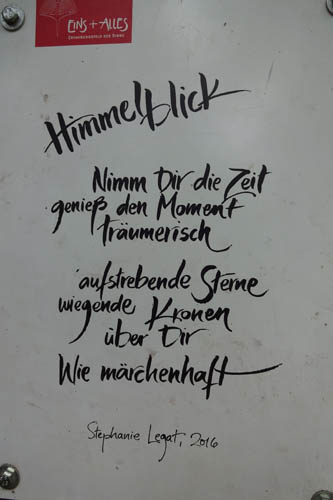 EINS+ALLES
ERFAHRUNGSFELD DER SINNE
Himmelblick
Nimm Dir die Zeit
genieß den Moment
träumerisch
aufstrebende Sterne
wiegende Kronen
über Dir
Wie märchenhaft
Stephanie Legat, 2016